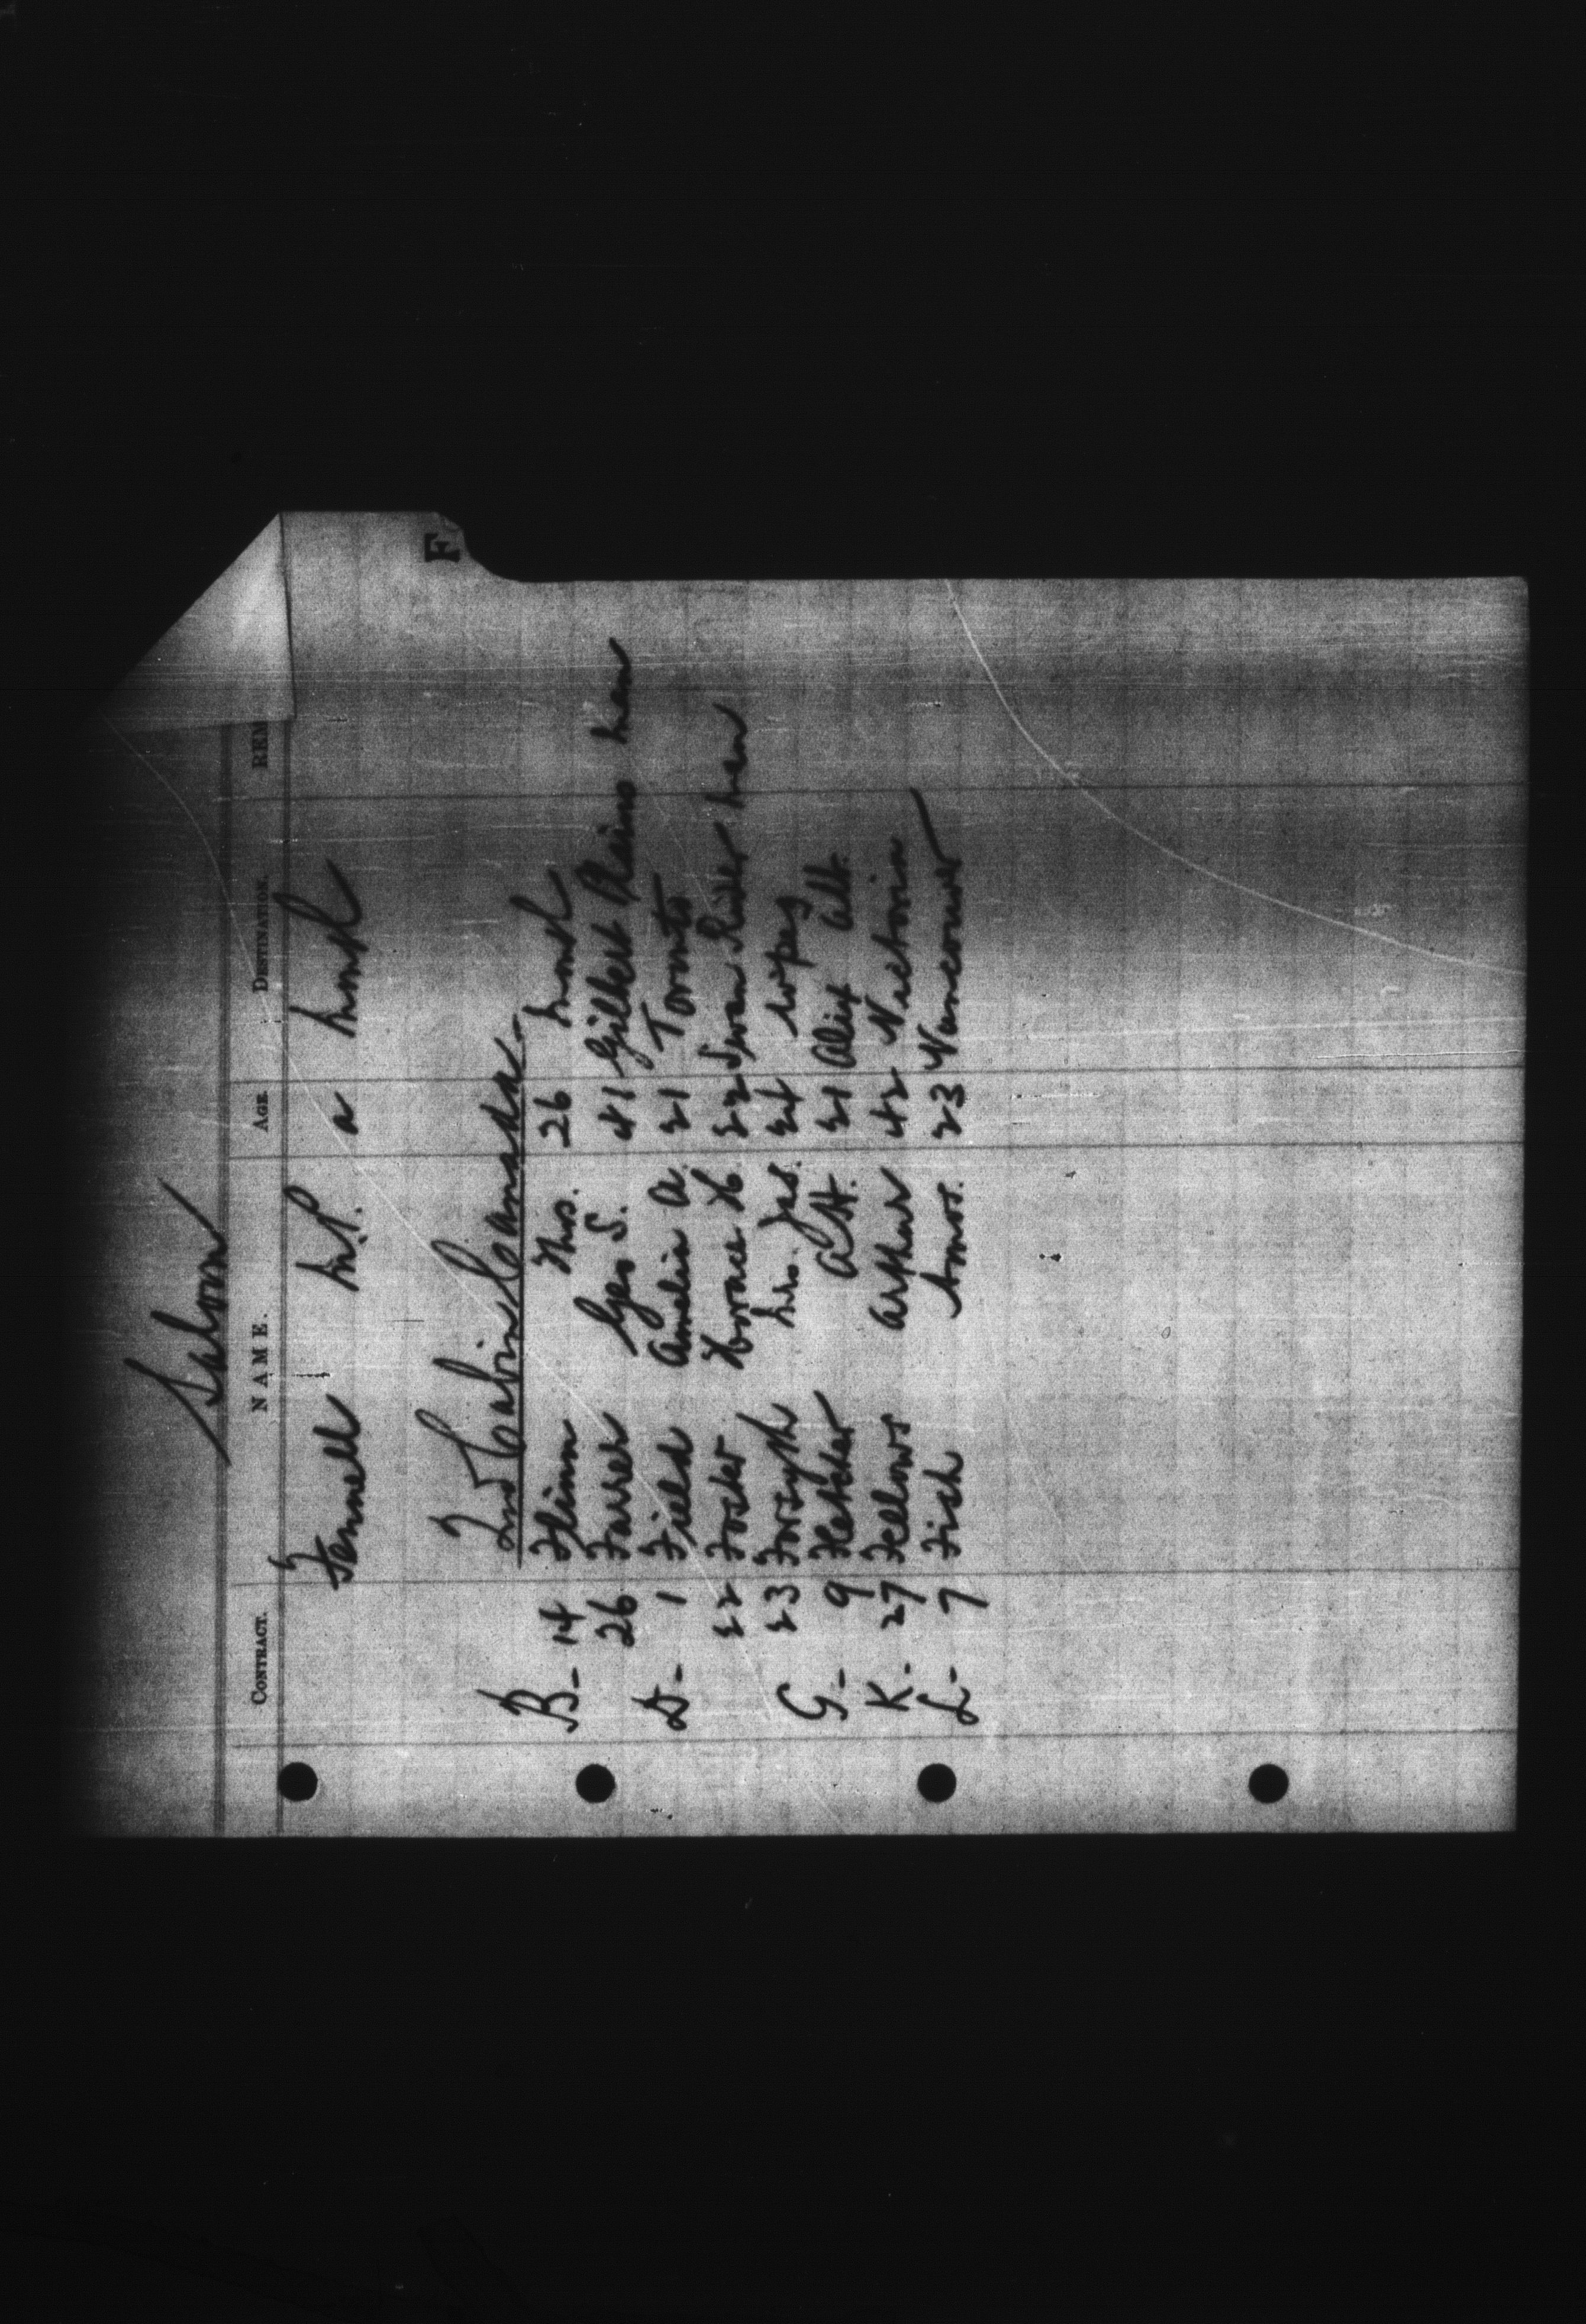 Saloon
CONTRACT. NAME. AGE. DESTINATION. REM
Fennell M.P. a Montl
F
2nd Cabin Canada
B- 14 Flinn Thos. 26 Montl
26 Farrer Geo S. 41 Gilbert Plains Man
D- 1 Field Amelia A. 21 Toronto
22 Foster Horace H 22 Swan River Man
23 Forsyth Mrs. Jas. 24 Wipeg
G- 9 Fletcher A H. 21 Alix Alt.
K- 27 Fellows Arthur 42 Victoria
L- 7 Fish Amos. 23 Vancouver